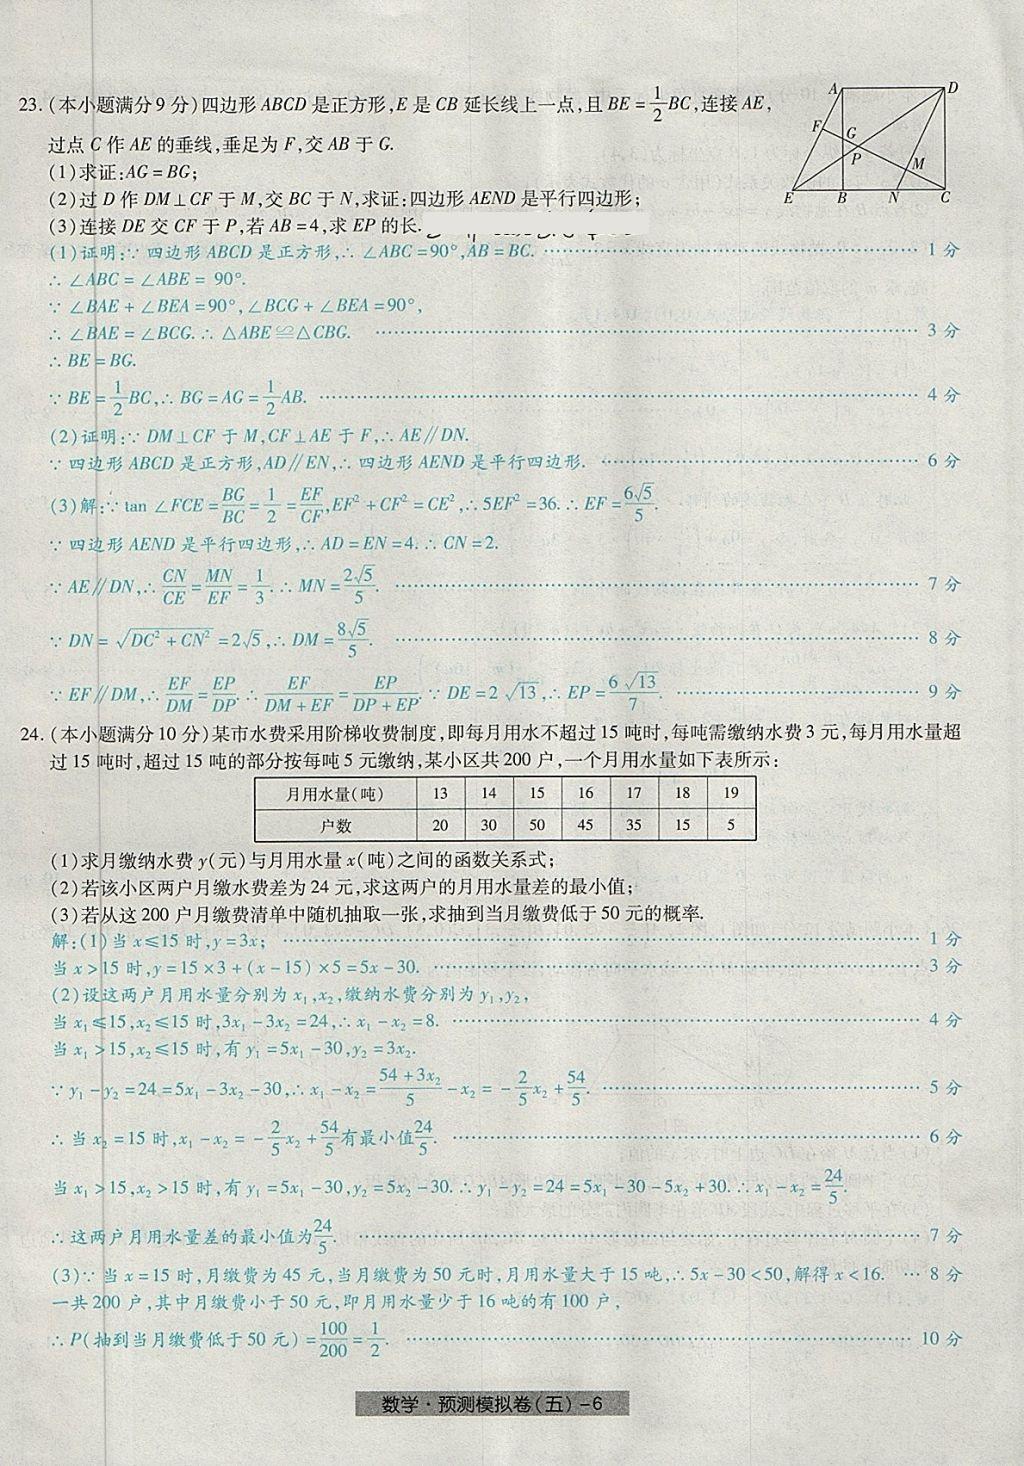 23.(本小题满分9分)四边形ABCD是正方形,E是CB延长线上一点,且BE=1/2BC,连接AE,
过点C作AE的垂线,垂足为F,交AB于G.
(1)求证:AG=BG;
(2)过D作DM⊥CF于M,交BC于N,求证:四边形AEND是平行四边形;
(3)连接DE交CF于P,若AB=4,求EP的长.
A D F G P M E B N C
(1)证明:∵四边形ABCD是正方形,∴∠ABC=90°,AB=BC. 1分
∴∠ABC=∠ABE=90°.
∵∠BAE+∠BEA=90°,∠BCG+∠BEA=90°,
∴∠BAE=∠BCG.∴△ABE≌△CBG. 3分
∴BE=BG.
∵BE=1/2BC,∴BG=AG=1/2AB. 4分
(2)证明:∵DM⊥CF于M,CF⊥AE于F,∴AE∥DN.
∵四边形ABCD是正方形,AD∥EN,∴四边形AEND是平行四边形. 6分
(3)解:∵tan∠FCE=BG/BC=1/2=EF/CF,EF²+CF²=CE²,∴5EF²=36.∴EF=6√5/5.
∵四边形AEND是平行四边形,∴AD=EN=4.∴CN=2.
∵AE∥DN,∴CN/CE=MN/EF=1/3.∴MN=2√5/5. 7分
∵DN=√(DC²+CN²)=2√5,∴DM=8√5/5. 8分
∵EF∥DM,∴EF/DM=EP/DP.∴EF/(DM+EF)=EP/(DP+EP).∵DE=2√13,∴EP=6√13/7. 9分
24.(本小题满分10分)某市水费采用阶梯收费制度,即每月用水不超过15吨时,每吨需缴纳水费3元,每月用水量超
过15吨时,超过15吨的部分按每吨5元缴纳,某小区共200户,一个月用水量如下表所示:
月用水量(吨) 13 14 15 16 17 18 19
户数 20 30 50 45 35 15 5
(1)求月缴纳水费y(元)与月用水量x(吨)之间的函数关系式;
(2)若该小区两户月缴水费差为24元,求这两户的月用水量差的最小值;
(3)若从这200户月缴费清单中随机抽取一张,求抽到当月缴费低于50元的概率.
解:(1)当x≤15时,y=3x; 1分
当x>15时,y=15×3+(x-15)×5=5x-30. 3分
(2)设这两户月用水量分别为x₁,x₂,缴纳水费分别为y₁,y₂,
当x₁≤15,x₂≤15时,3x₁-3x₂=24,∴x₁-x₂=8. 4分
当x₁>15,x₂≤15时,有y₁=5x₁-30,y₂=3x₂.
∵y₁-y₂=24=5x₁-3x₂-30,∴x₁-x₂=(54+3x₂)/5-x₂=-2/5x₂+54/5. 5分
∴当x₂=15时,x₁-x₂=-2/5x₂+54/5有最小值24/5. 6分
当x₁>15,x₂>15时,有y₁=5x₁-30,y₂=5x₂-30.∴y₁-y₂=24=5x₁-30-5x₂+30.∴x₁-x₂=24/5.
∴这两户月用水量差的最小值为24/5. 7分
(3)∵当x=15时,月缴费为45元,当月缴费为50元时,月用水量大于15吨,∴5x-30<50,解得x<16. 8分
一共200户,其中月缴费小于50元,即月用水量少于16吨的有100户,
∴P(抽到当月缴费低于50元)=100/200=1/2. 10分
数学·预测模拟卷(五)-6